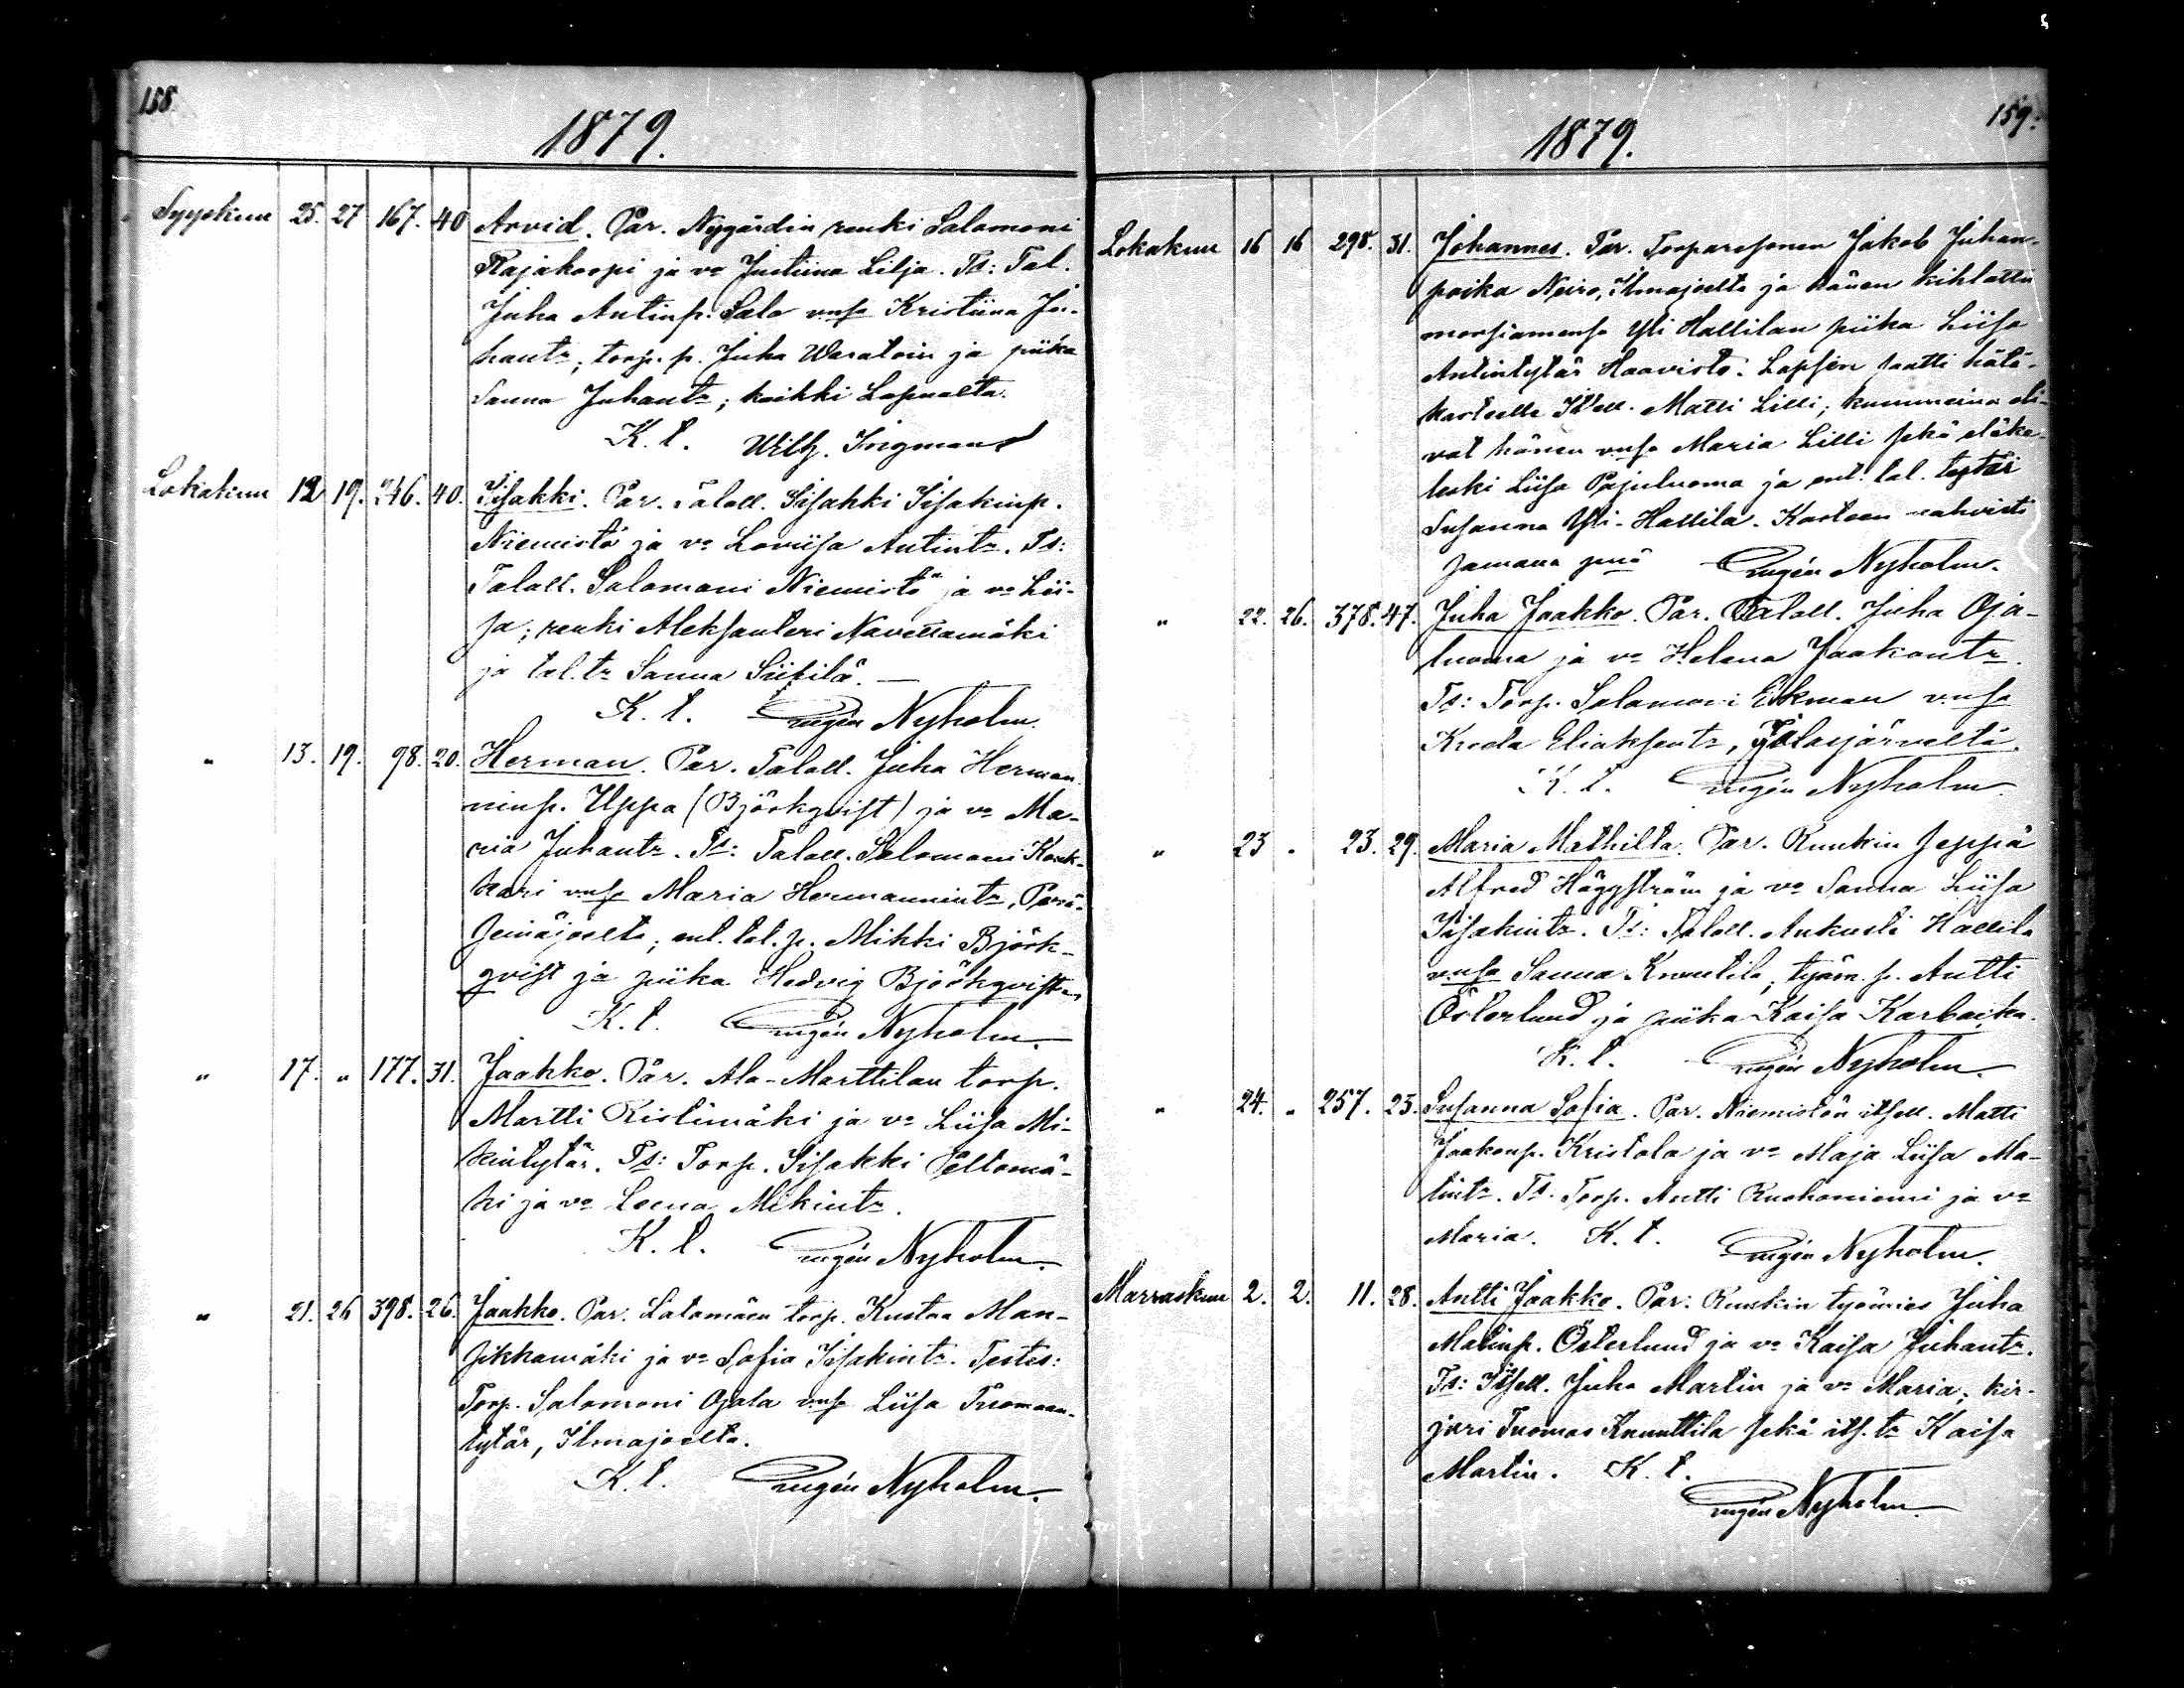 158.
1879.
Syyskuu 25. 27 167. 40 Arvid. Par. Nygårdin renki Salomoni
Rajakorpi ja vo Justiina Lilja. Ts: Tal.
Juha Antinp. Salo vmsa Kristiina Ju-
hantr, torp. p. Juha Waratoin ja piika
Sanna Juhantr; kaikki Lapualta.
K. t. Wilh. Ingman
Lokakuu 12 19. 246. 40. Iisakki. Par. Talall. Iisakki Iisakinp.
Niemistö ja vo Loviisa Antintr. Ts:
Talall. Salomoni Niemistö ja vo Lii-
sa; renki Aleksanteri Navettamäki
ja tal. tr Sanna Siitilä. —
K. t. Eugén Nyholm.
" 13. 19. 98. 20. Herman. Par. Talall. Juha Herman
ninp. Uppa (Björkqvist) ja vo Ma-
ria Juhantr. Ts: Talall. Salomoni Konk-
kari vmsa Maria Hermannintr, Perä-
Seinäjoelta; ent. tal. p. Mikki Björk-
qvist ja piika Hedvig Björkqvist
K. t. Eugén Nyholm.
" 17. " 177. 31. Jaakko. Par. Ala-Marttilan torp.
Martti Ristimäki ja vo Liisa Mi-
kintytär. Ts: Torp. Iisakki Peltomä-
ki ja vo Leena Mikintr.
K. t. Eugén Nyholm.
" 21. 26 398. 26. Jaakko. Par. Latomäen torp. Kustaa Man-
sikkamäki ja vo Sofia Iisakintr. Testes:
Torp. Salomoni Ojala vmsa Liisa Tuomaan-
tytär, Ilmajoelta.
K. t. Eugén Nyholm.
159.
1879.
Lokakuu 16 16 298. 31. Johannes. Par. Torparesonen Jakob Juhan-
poika Neiro, Ilmajoelta ja hänen kihlattu
morsiamensa Yli Hallilan piika Liisa
Antintytär Haavisto. Lapsen saatti hätä-
kasteelle Itsell. Matti Lilli; kummeina oli-
vat hänen vmsa Maria Lilli sekä eläke-
leski Liisa Pajuluoma ja ent. tal. tytär
Susanna Yli-Hallila. Kasteen vahvisti
samana pnä Eugén Nyholm.
" 22. 26. 378. 47. Juha Jaakko. Par. Talall. Juha Oja-
luoma ja vo Helena Jaakontr.
Ts: Torp. Salamoni Ekman vmsa
Kreeta Eliaksentr, Jalasjärveltä.
K. t. Eugén Nyholm.
" 23 " 23. 29. Maria Mathilta. Par. Ruukin Seppä
Alfred Häggström ja vo Sanna Liisa
Iisakintr. Ts: Talall. Aukusti Hallila
vmsa Sanna Knuutila; työm. p. Antti
Österlund ja piika Kaisa Karbacka.
K. t. Eugén Nyholm.
" 24. " 257. 23. Susanna Sofia. Par. Niemistön itsell. Matti
Jaakonp. Kristola ja vo Maja Liisa Ma-
tintr. Ts: Torp. Antti Ruohoniemi ja vo
Maria. K. t. Eugén Nyholm.
Marraskuu 2. 2. 11. 28. Antti Jaakko. Par: Ruukin työmies Juha
Matinp. Österlund ja vo Kaisa Juhantr.
Ts: Itsell. Juha Martin ja vo Maria; kir-
juri Tuomas Knuuttila sekä its. tr Kaisa
Martin. K. t.
Eugén Nyholm.